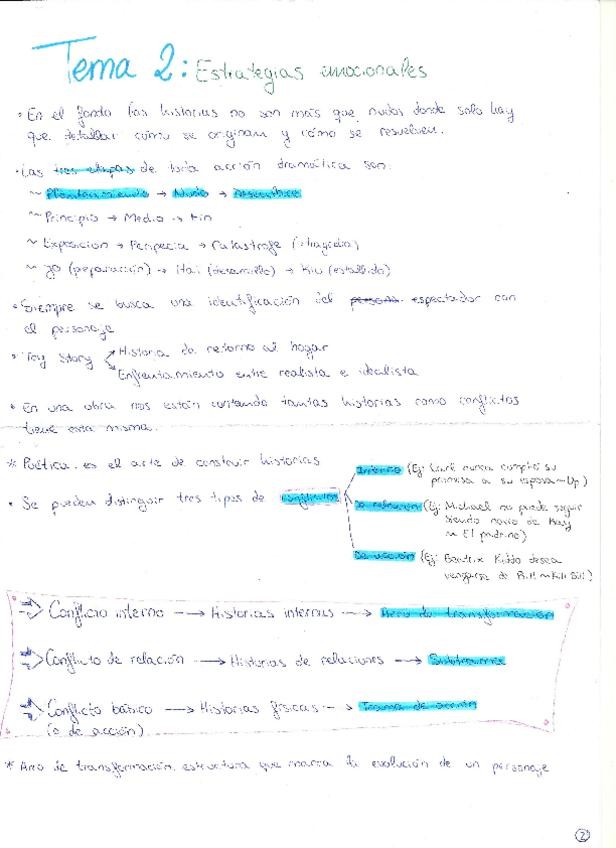 Tema 2: Estrategias emocionales
• En el fondo las historias no son más que nudos donde solo hay
que detallar cómo se originan y cómo se resuelven.
• Las tres etapas de toda acción dramática son:
~ Planteamiento → Nudo → Desenlace
~ Principio → Medio → Fin
~ Exposición → Peripecia → Catástrofe (tragedia)
~ Jo (preparación) → Hai (desarrollo) → Kiu (estallido)
• Siempre se busca una identificación del espectador con
el personaje
• Toy Story
Historia de retorno al hogar
Enfrentamiento entre realista e idealista
• En una obra nos están contando tantas historias como conflictos
tiene esta misma.
* Poética: es el arte de construir historias
• Se pueden distinguir tres tipos de conflictos
Interno (Ej: Carl nunca cumplió su
promesa a su esposa ~ Up)
De relación (Ej: Michael no puede seguir
siendo novio de Kay
~ El padrino)
De acción (Ej: Beatrix Kiddo desea
vengarse de Bill ~ Kill Bill)
⇒ Conflicto interno → Historias internas → Arco de transformación
⇒ Conflicto de relación → Historias de relaciones → Subtramas
⇒ Conflicto básico → Historias físicas → Trama de acción
(o de acción)
* Arco de transformación: estructura que marca la evolución de un personaje
2